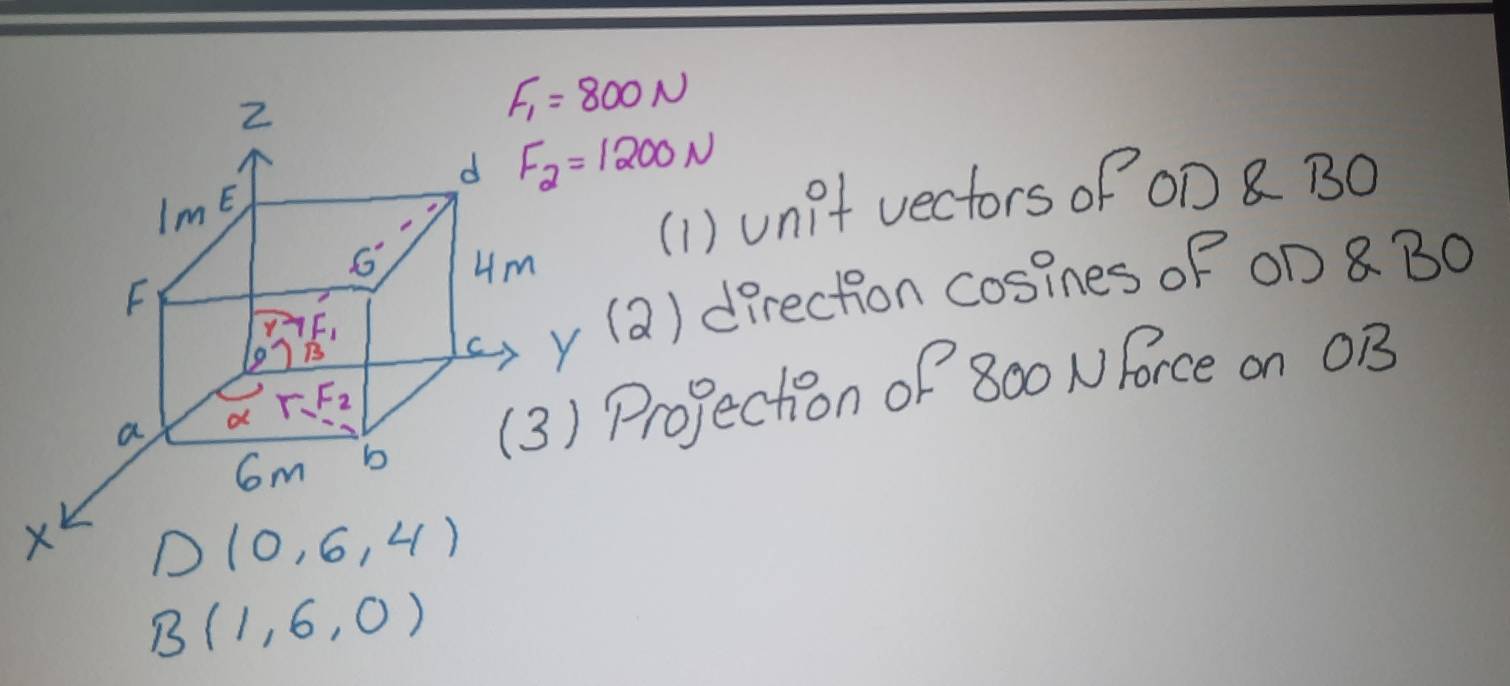 F₁ = 800 N
F₂ = 1200 N
Z
d
1m E
(1) unit vectors of OD & BO
G
4m
F
(2) direction cosines of OD & BO
γ F₁
O B
c
Y
(3) Projection of 800 N force on OB
F₂
α
a
6m
b
X
D(0,6,4)
B(1,6,0)